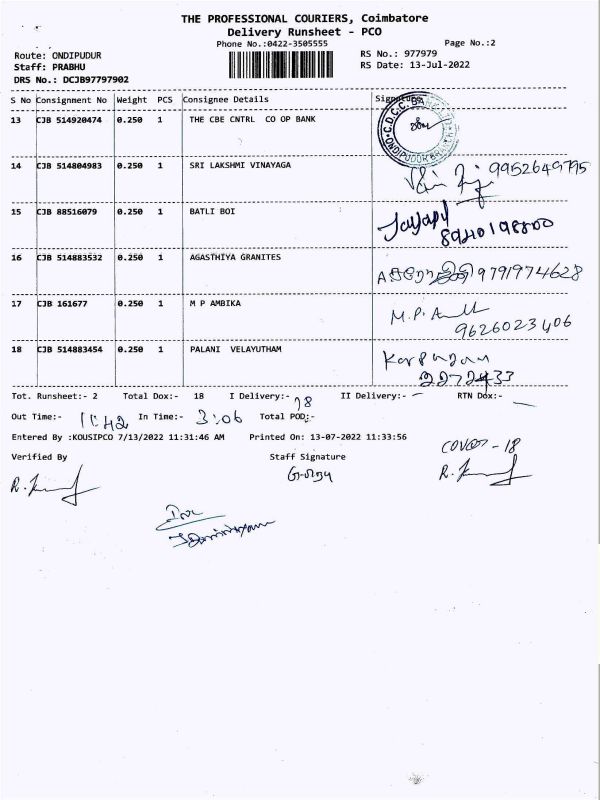 THE PROFESSIONAL COURIERS, Coimbatore
Delivery Runsheet - PCO
Phone No.:0422-3505555
Page No.:2
Route: ONDIPUDUR
RS No.: 977979
Staff: PRABHU
RS Date: 13-Jul-2022
DRS No.: DCJB97797902
S No Consignment No Weight PCS Consignee Details Signature
13 CJB 514920474 0.250 1 THE CBE CNTRL CO OP BANK
14 CJB 514804983 0.250 1 SRI LAKSHMI VINAYAGA 9952649795
15 CJB 88516079 0.250 1 BATLI BOI 8940198800
16 CJB 514883532 0.250 1 AGASTHIYA GRANITES 9791974628
17 CJB 161677 0.250 1 M P AMBIKA M.P.
9626023406
18 CJB 514883454 0.250 1 PALANI VELAYUTHAM
Tot. Runsheet:- 2 Total Dox:- 18 I Delivery:- 18 II Delivery:- - RTN Dox:- -
Out Time:- 11:42 In Time:- 3:06 Total POD:-
Entered By :KOUSIPCO 7/13/2022 11:31:46 AM Printed On: 13-07-2022 11:33:56
Verified By Staff Signature